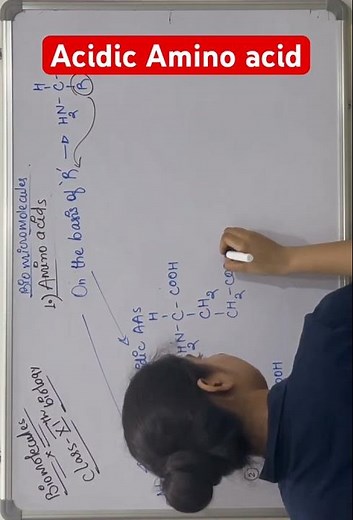 Acidic Amino acid
Biomolecules
Class XI
Bio micromolecules
1.) Amino acids
On the basis of 'R' →
H
H2N-C-
R
AAs
H
H2N-C-COOH
CH2
CH2-CO
OOH
2